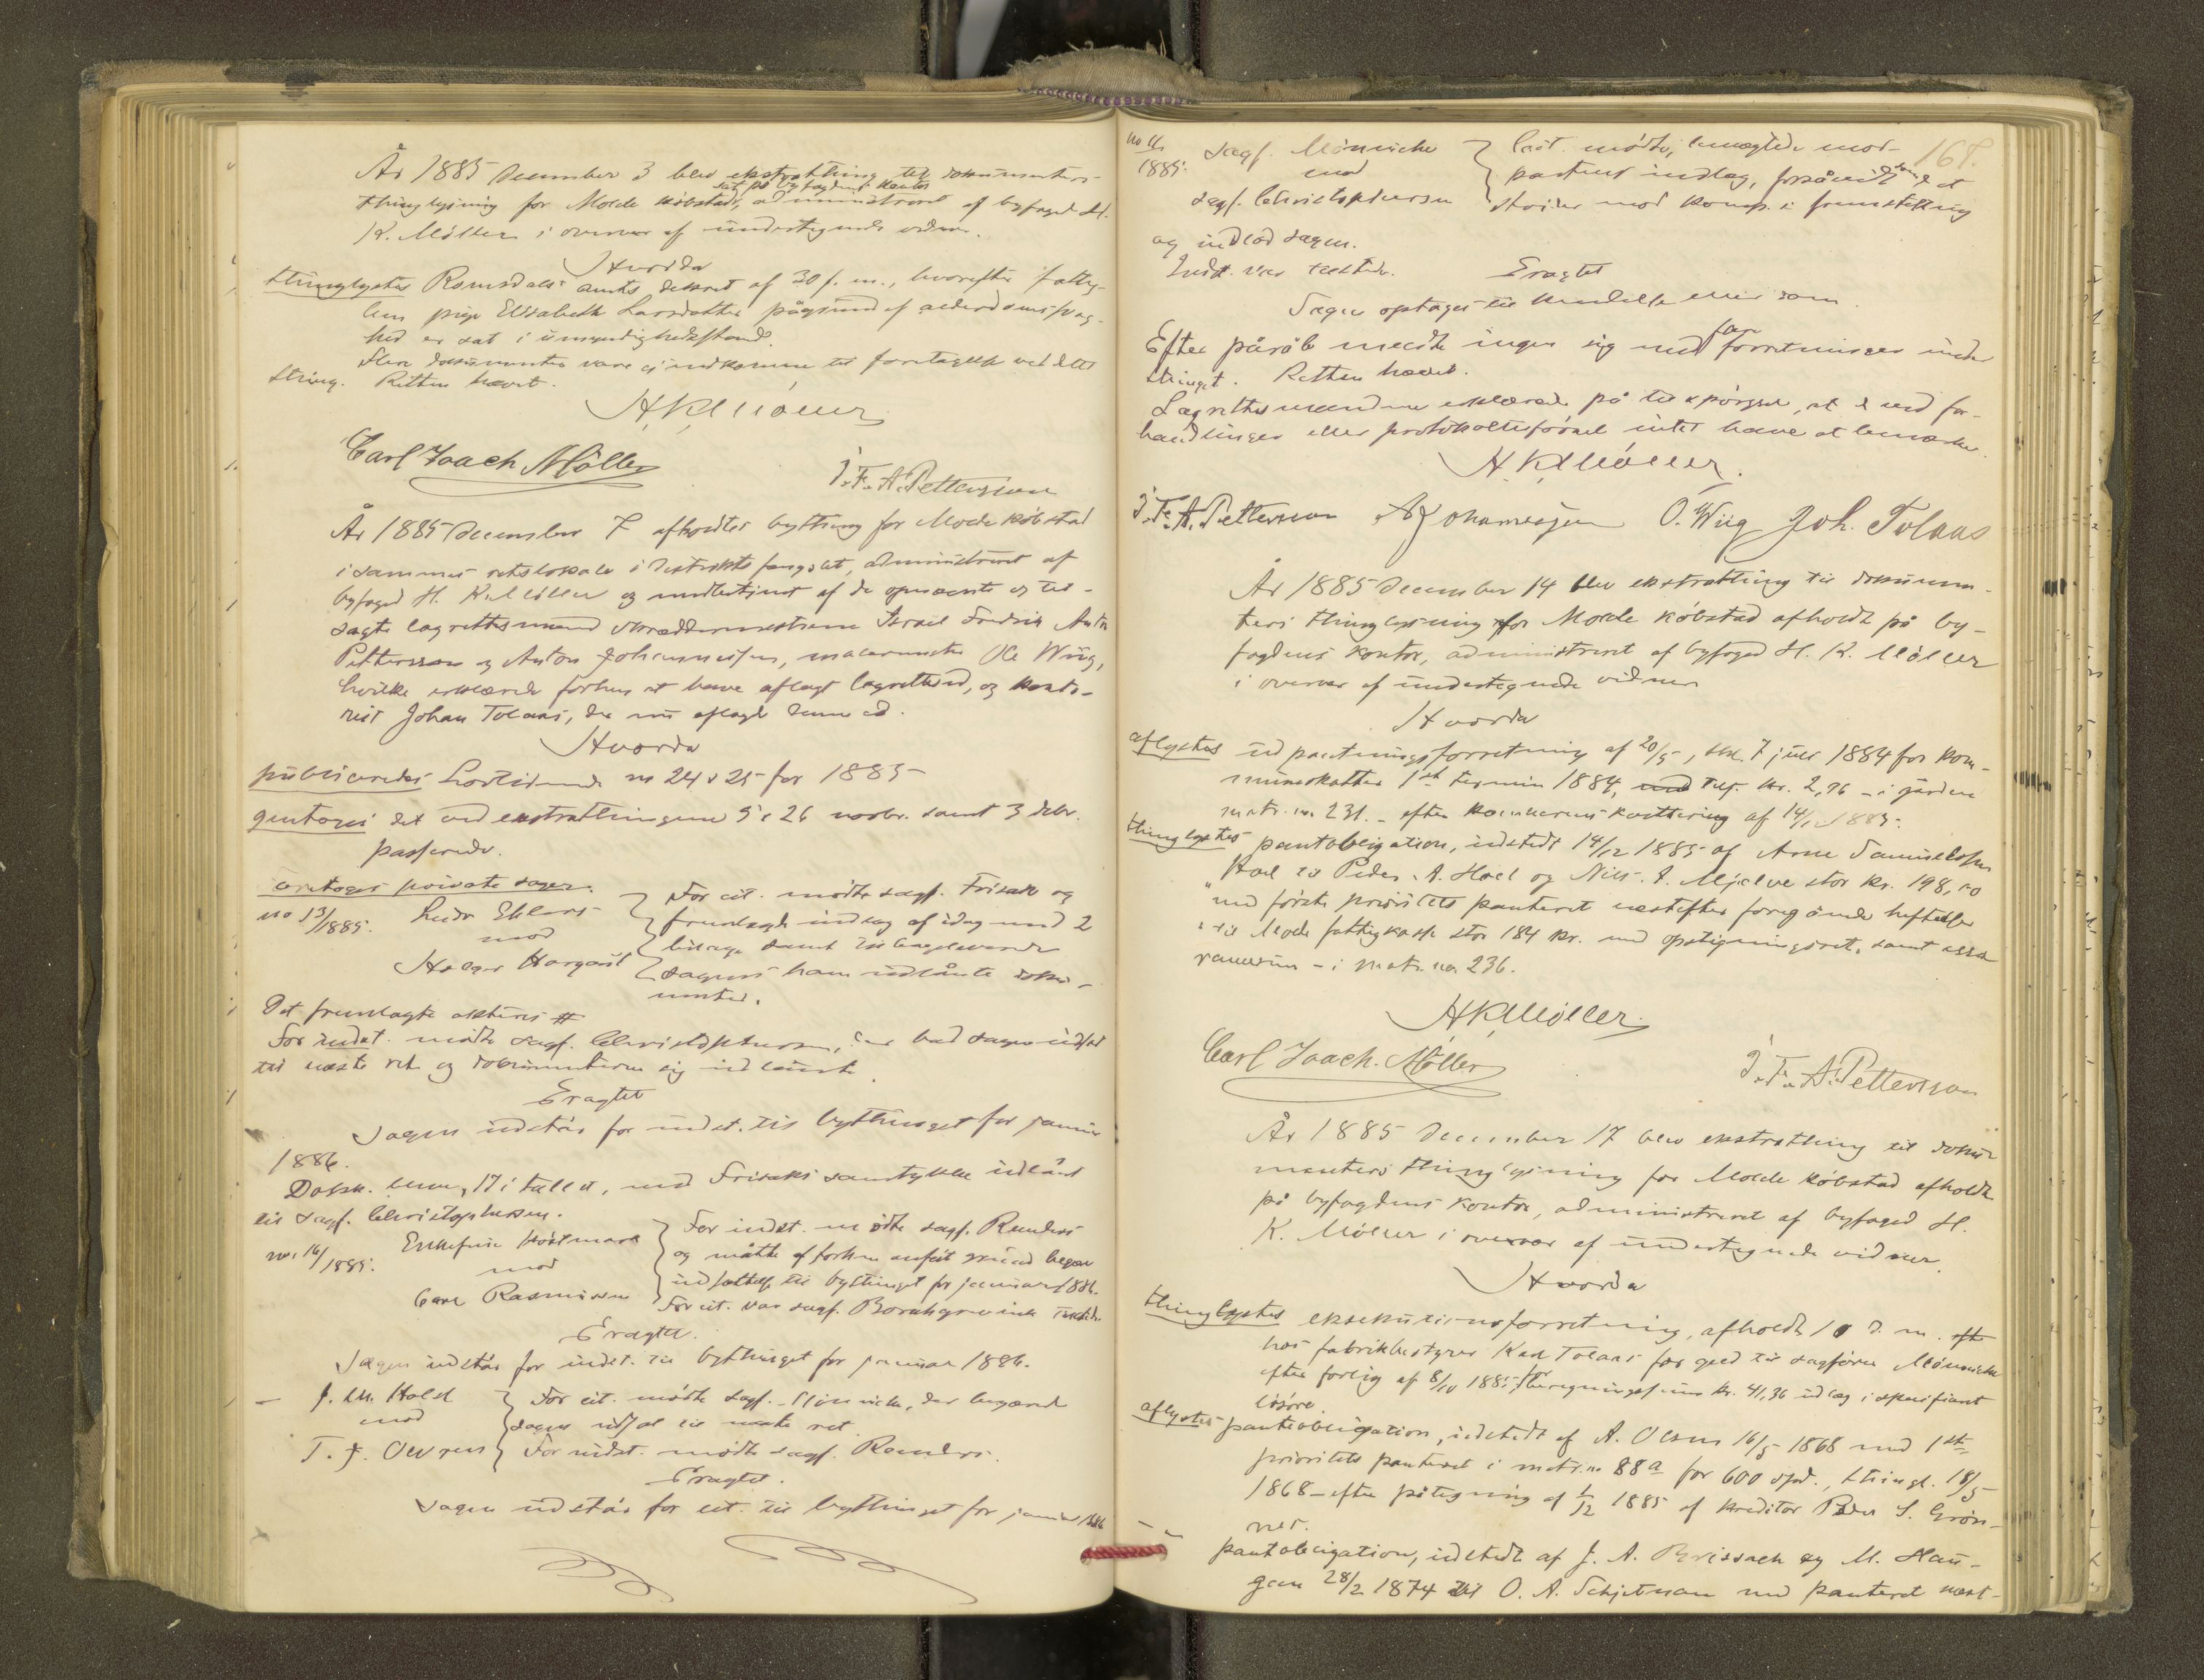 År 1885 December 3 blev ekstrathing til dokumenters
sat på byfogdens kontor
thinglysning for Molde købstad, administreret af byfoged H.
K. Møller i overvær af undertegnede vidner.
Hvorda
thinglystes Romsdals amts dekret af 30 f. m., hvorefter fattig-
lem pige Elisabeth Larsdatter på grund af alderdomssvag-
hed er sat i umyndighedsstand.
Flere dokumenter vare ej indkomne til foretagelse ved dette
thing. Retten hævet.
H. K. Møller
Carl Joach. Møller
I. F. A. Petterson
År 1885 December 7 afholdtes bything for Molde købstad
i sammes retslokale i distriktsfængslet, administreret af
byfoged H. K. Møller og medbetjent af de opnævnte og til-
sagte lagrettesmænd skræddermestrene Israel Fredrik Anton
Petterson og Anton Johannesen, malermester Ole Wiig,
hvilke erklærede forhen at have aflagt lagretteed, og konto-
rist Johan Tolaas, der nu aflagde denne ed.
Hvorda
publiceredes Lovtidende no 24 & 25 for 1885
gjentoges det ved ekstrathingene 5 & 26 novbr. samt 3 debr.
passerede.
foretoges private sager.
no 13/1885. Ludv. Ehlers
mod
Holger Hargaut
For cit. mødte sagf. Frisak og
fremlagde indlæg af idag med 2
bilage samt tilbageleverede
sagens ham udlånte doku-
menter.
Det fremlagte akteres #
For indst. mødte sagf. Christophersen, der bad sagen udsat
til næste ret og dokumenterne sig udlånte.
Eragtet
Sagen udstår for indst. til bythinget for januar
1886.
Dokk. , 17 i tallet, med Frisaks samtykke udlånt
til sagf. Christophersen.
no. 16/1885. Enkefrue Høstmark
mod
Carl Rasmussen
For indst. mødte sagf. Remlers
og måtte af forhen anført grund begjære
udsættelse til bythinget for januar 1886.
For cit. var sagf. Borchgrevink tilstede.
Eragtet.
Sagen udstår for indst. til bythinget for januar 1886.
— J. M. Holst
mod
T. J. Owren
For cit. mødte sagf. Mönniche, der begjærede
sagen udsat til næste ret.
For indst. mødte sagf. Remlers.
Eragtet.
Sagen udstår for cit. til bythinget for januar 1886
168.
no
1885. Sagf. Mönniche
mod
Sagf. Christophersen
Cit. mødte, benægtede mod-
partens indlæg, forsåvidt samme et
strider mod komp. i fremstilling
og indlod sagen.
Indst. var tilstede.
Eragtet
Sagen optages til kjendelse eller dom.
Efter påråb meldte ingen sig med flere forretninger inden
thinget. Retten hævet.
Lagrettesmændene erklærede på tilspørgsel, at d ved for-
handlinger eller protokoltilførsel intet have at bemærke.
H. K. Møller.
I. F. A. Petterson A Johannesen O. Wiig Joh. Tolaas
År 1885 December 14 blev ekstrathing til dokumen-
ters thinglysning for Molde købstad afholdt på by-
fogdens kontor, administreret af byfoged H. K. Møller
i overvær af undertegnede vidner
Hvorda
aflystes udpantningsforretning af 20/5, thl. 7 juli 1884 for kom-
muneskatter 1ste termin 1884, tils. kr. 2,96 – i gården
matr. no. 231. – efter kæmnerens kvittering af 14/12 1885.
thinglystes pantobligation, udstedt 14/12 1885 af Arne Samuelsen
Hoel til Peder A. Hoel og Nils A. Mjelve stor kr. 198,00
med første prioritets panteret næstefter foregående heftelse
til Molde fattigkasse stor 184 kr. med opstigningsret, samt assu-
rancesum – i matr. no. 236.
H K Møller.
Carl Joach. Møller
I. F. A. Petterson
År 1885 December 17 blev ekstrathing til doku-
menters thinglysning for Molde købstad afholdt
på byfogdens kontor, administreret af byfoged H.
K. Møller i overvær af undertegnede vidner.
Hvorda
thinglystes eksekutionsforretning, afholdt 10 d. m. efter
hos fabrikbestyrer Karl Tolaas for gjeld til sagfører Mönniche
efter forlig af 8/10 1885; for beregningssum kr. 41,36 udlæg i specificeret
løsøre.
aflystes pantobligation, udstedt af A. Olsen 16/5 1868 med 1ste
prioritets panteret i matr. no 88a for 600 spd., thingl. 18/5
1868 – efter påtegning af 1/12 1885 af kreditor Peder S. Grøn-
nes.
— „ pantobligation, udstedt af J. A. Brissach og M. Hau-
gen 28/2 1874 til O. A. Schjetnan med panteret næst-